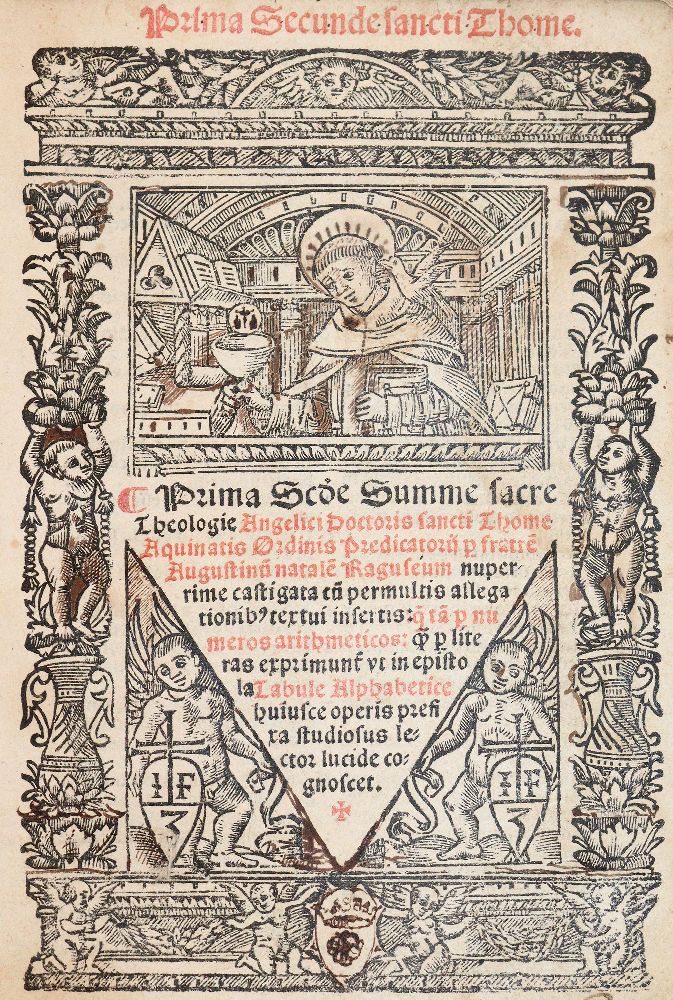 Prima Secunde sancti Thome.
¶ Prima Scḋe Summe sacre
Theologie Angelici Doctoris sancti Thome
Aquinatis Ordinis Predicatorū ꝑ fratrē
Augustinū natalē Raguseum nuper-
rime castigata cū permultis allega
tionibꝰ textui insertis: q̄ tā ꝑ nu
meros arithmeticos: ꝙ ꝑ lite
ras exprimunt᷑ vt in episto
la Tabule Alphabetice
huiusce operis prefi
xa studiosus le-
ctor lucide co-
gnoscet.
I F
I F